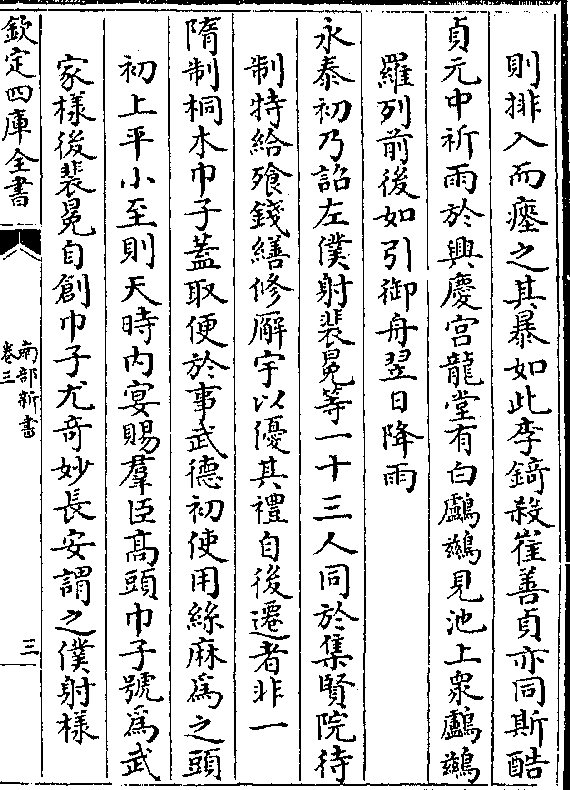 則排入而瘞之其暴如此李錡殺崔善貞亦同斯酷
貞元中祈雨於興慶宮龍堂有白鸕鷀見池上衆鸕鷀
羅列前後如引御舟翌日降雨
永泰初乃詔左僕射裴冕等一十三人同於集賢院待
制特給飱錢繕修廨宇以優其禮自後遷者非一
隋制桐木巾子蓋取便於事武德初使用絲麻爲之頭
初上平小至則天時内宴賜羣臣髙頭巾子號爲武
家様後裴冕自創巾子尤奇妙長安謂之僕射様
欽定四庫全書
南部新書
卷三
三